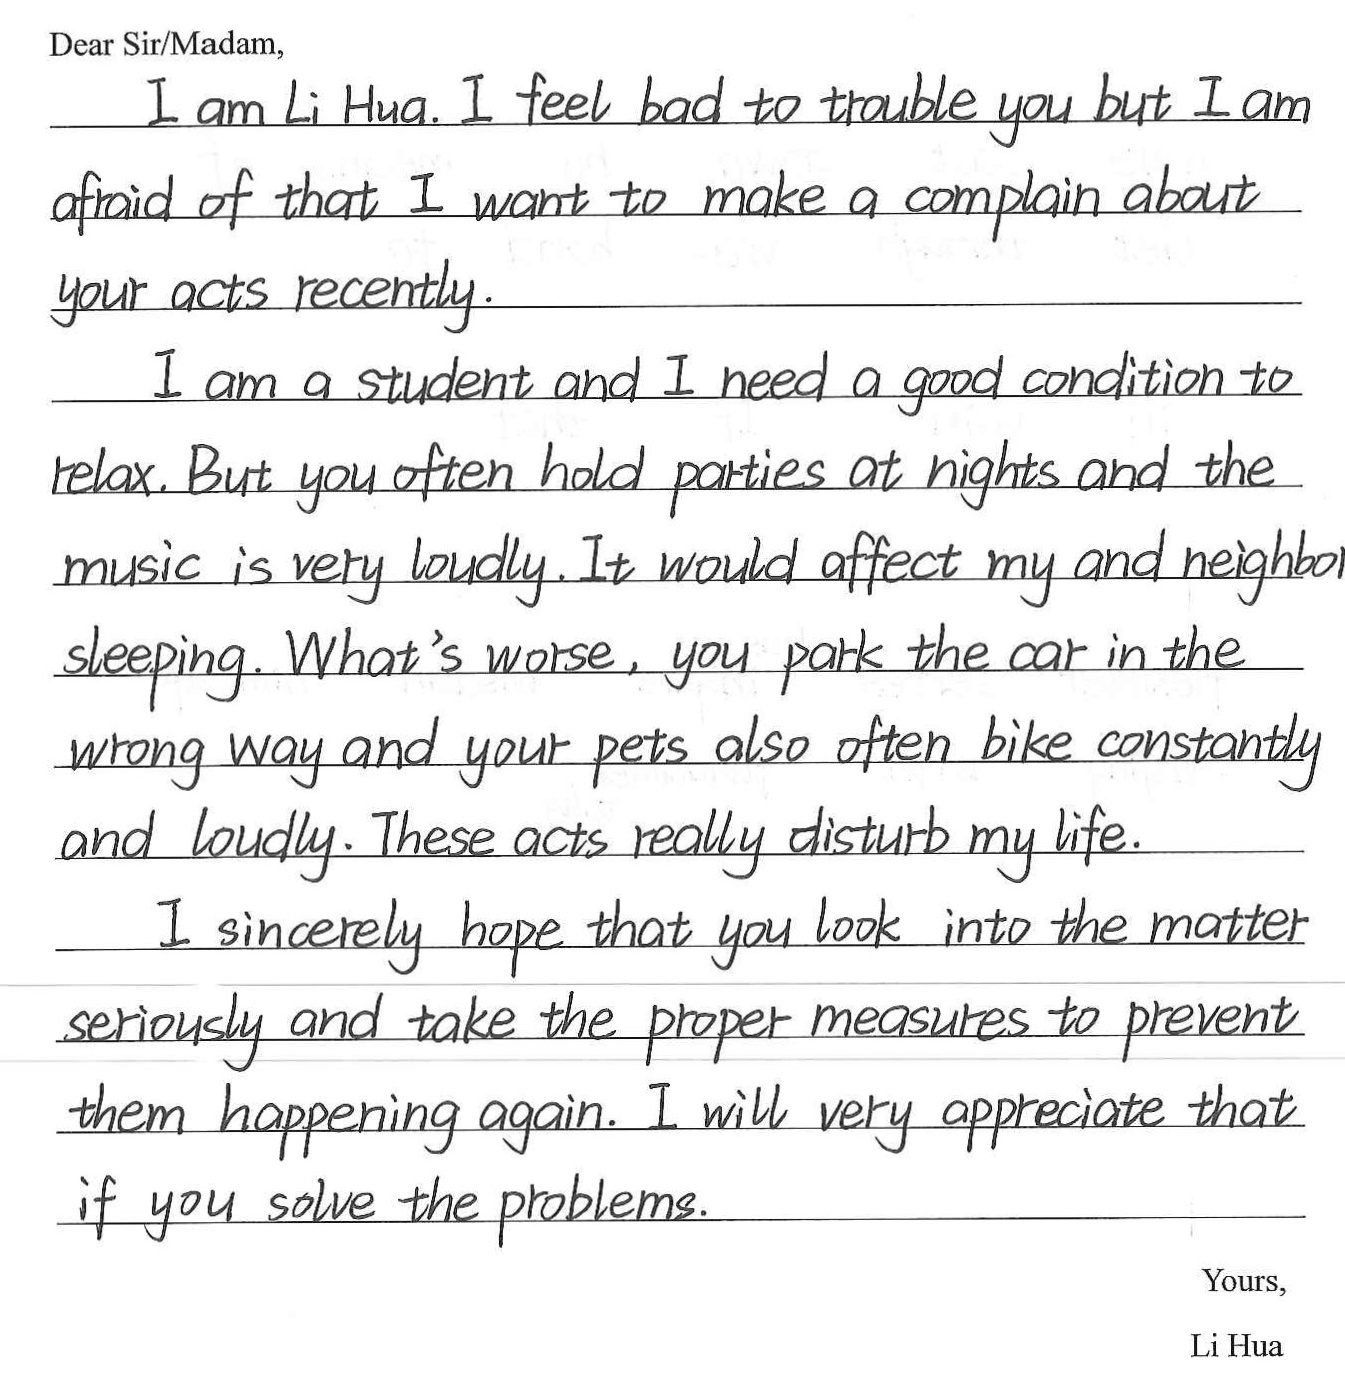 Dear Sir/Madam,
I am Li Hua. I feel bad to trouble you but I am
afraid of that I want to make a complain about
your acts recently.
I am a student and I need a good condition to
relax. But you often hold parties at nights and the
music is very loudly. It would affect my and neighbor
sleeping. What's worse, you park the car in the
wrong way and your pets also often bike constantly
and loudly. These acts really disturb my life.
I sincerely hope that you look into the matter
seriously and take the proper measures to prevent
them happening again. I will very appreciate that
if you solve the problems.
Yours,
Li Hua